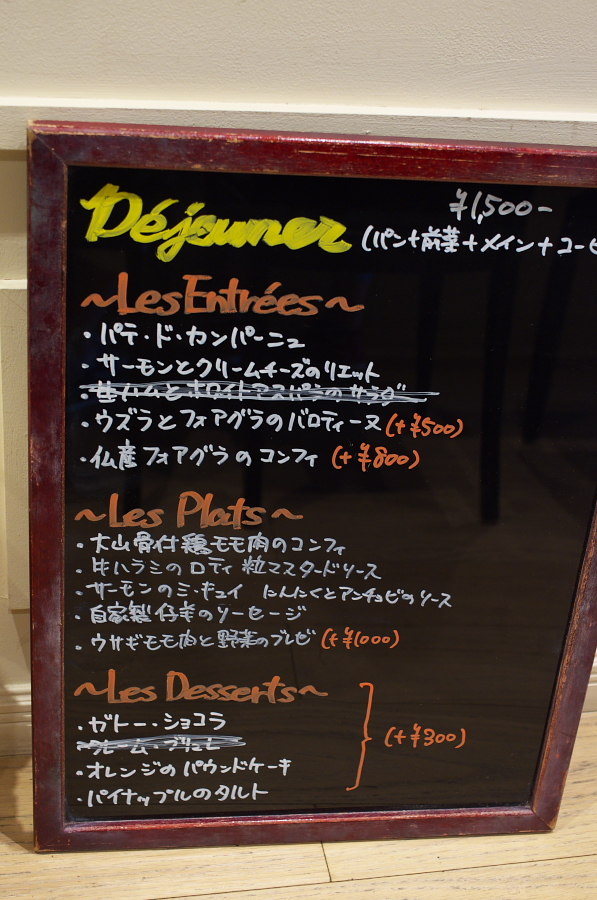 Déjeuner
¥1,500-
(パン+前菜+メイン+コーヒ
~Les Entrées~
・パテ・ド・カンパーニュ
・サーモンとクリームチーズのリエット
・生ハムとホワイトアスパラのサラダ
・ウズラとフォアグラのバロティーヌ (+¥500)
・仏産フォアグラのコンフィ (+¥800)
~Les Plats~
・大山骨付鶏モモ肉のコンフィ
・牛ハラミのロティ 粒マスタードソース
・サーモンのミ・キュイ にんにくとアンチョビのソース
・自家製仔羊のソーセージ
・ウサギモモ肉と野菜のブレゼ (+¥1000)
~Les Desserts~
・ガトー・ショコラ
・クレーム・ブリュレ
・オレンジのパウンドケーキ
・パイナップルのタルト
(+¥300)